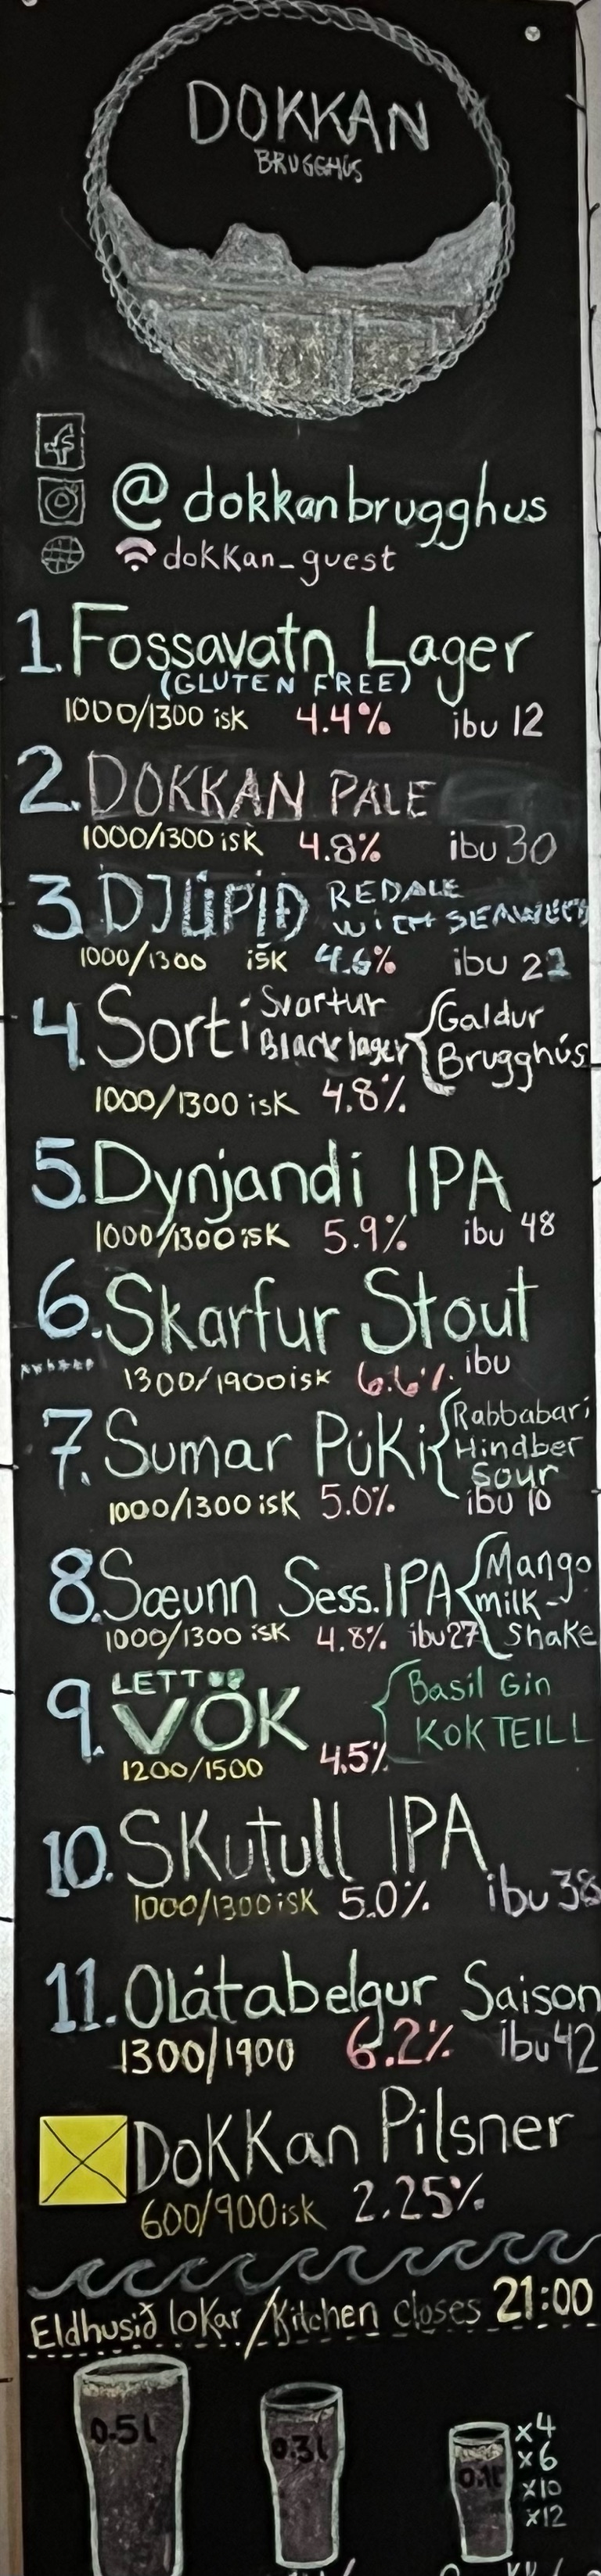 DOKKAN
BRUGGHÚS
@dokkanbrugghus
dokkan_guest
1. Fossavatn Lager
(GLUTEN FREE)
1000/1300 isk 4.4% ibu 12
2. DOKKAN PALE
1000/1300 isk 4.8% ibu 30
3. DJÚPIÐ RED ALE
WITH SEAWEED
1000/1300 isk 4.6% ibu 22
4. Sorti Svartur Galdur
Black lager Brugghús
1000/1300 isk 4.8%
5. Dynjandi IPA
1000/1300 isk 5.9% ibu 48
6. Skarfur Stout
1300/1900 isk 6.6% ibu
7. Sumar Púki Rabbabari
Hindber
Sour
1000/1300 isk 5.0% ibu 10
8. Sæunn Sess. IPA Mango
milk-
shake
1000/1300 isk 4.8% ibu 27
9. LETT
VÖK Basil Gin
KOKTEILL
1200/1500 4.5%
10. Skutull IPA
1000/1300 isk 5.0% ibu 38
11. Olátabelgur Saison
1300/1900 6.2% ibu 42
Dokkan Pilsner
600/900 isk 2.25%
Eldhusið lokar / Kitchen closes 21:00
0.5l 0.3l 0.1l
x4
x6
x10
x12